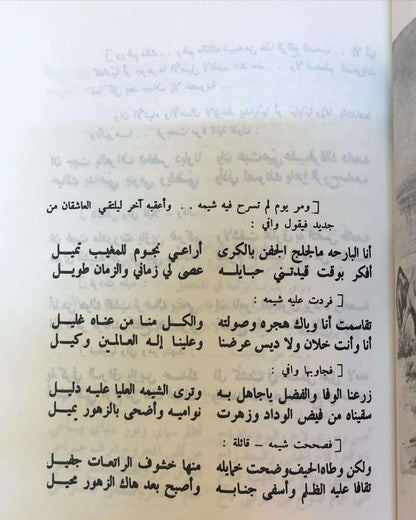 [ ومر يوم لم تسرح فيه شيمه . . وأعقبه آخر ليلتقي العاشقان من
جديد فيقول وافي :
أنا البارحه مالجلج الجفن بالكرى أراعي نجوم للمغيب تميل
أفكر بوقت قيدتني حبايله عصى لي زماني والزمان طويل
[ فردت عليه شيمه :
تقاسمت أنا وياك هجره وصولته والكل منا من عناه غليل
أنا وأنت خلان ولا ديس عرضنا وعلينا إله العالمين وكيل
[ فجاوبها وافي :
زرعنا الوفا والفضل ياجاهل به وترى الشيمه العليا عليه دليل
سقيناه من فيض الوداد وزهرت نواميه وأضحى بالزهور يميل
[ فصححت شيمه – قائلة :
ولكن وطاه الحيف وضحت خمايله منها خشوف الراتعات جفيل
تقافا عليه الظلم وأسفى جنابه وأصبح بعد هاك الزهور محيل